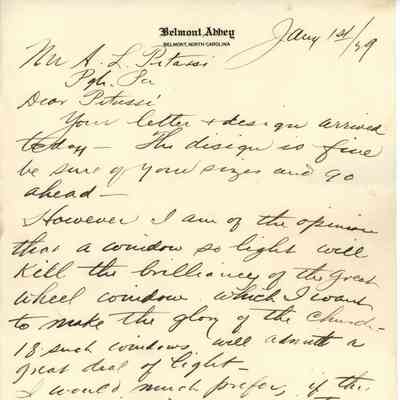 Belmont Abbey
BELMONT, NORTH CAROLINA
Jany 1st/39
Mr A. L. Pitassi
Pgh. Pa
Dear Pitassi
Your letter + design arrived
today — The disign is fine
be sure of your sizes and go
ahead —
However I am of the opinion
that a window so light will
kill the brilliancy of the great
wheel window which I want
to make the glory of the church —
18 such windows will admit a
great deal of light —
I would much prefer, if the